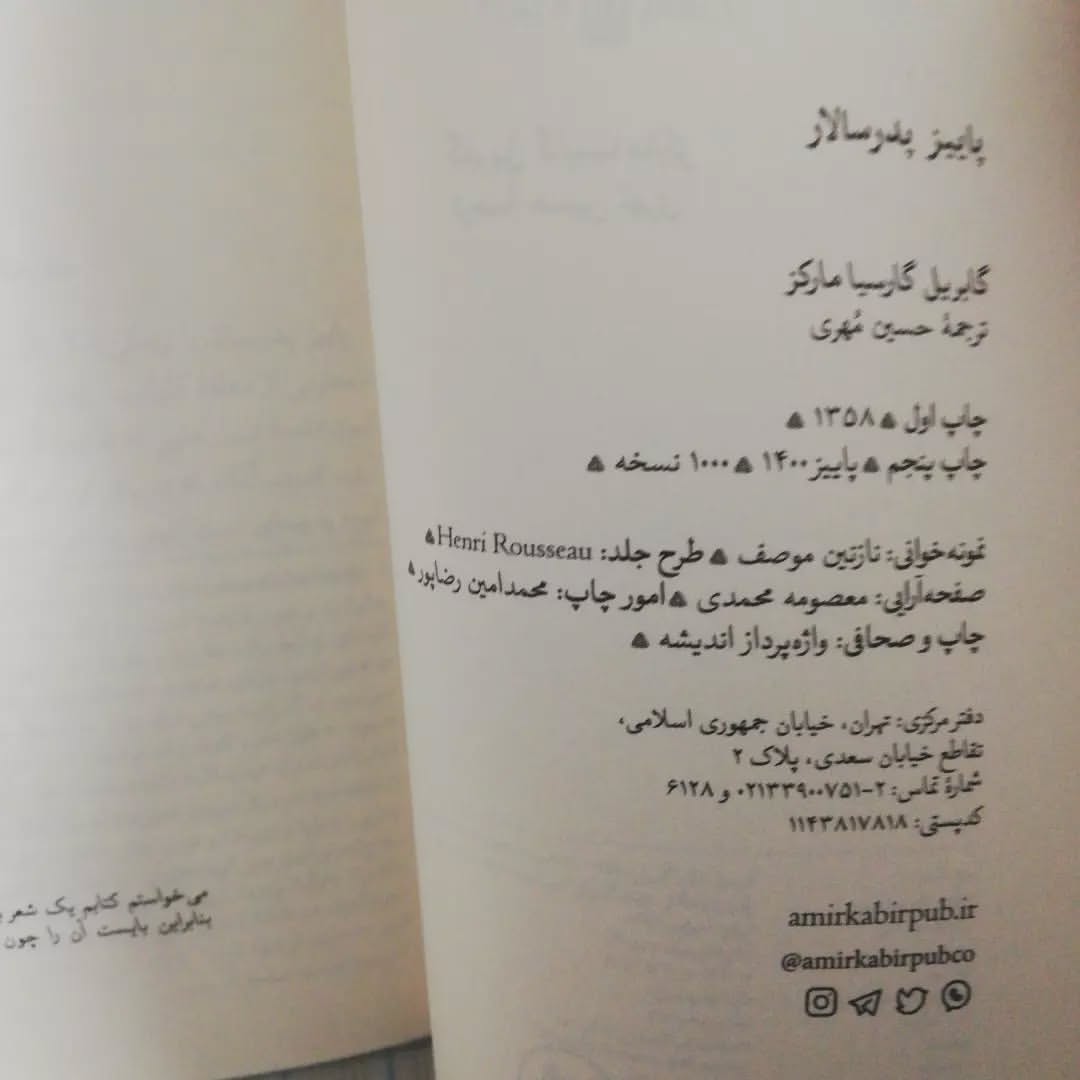 پاییز پدرسالار
گابریل گارسیا مارکز
ترجمهٔ حسین مُهری
چاپ اول ۱۳۵۸
چاپ پنجم پاییز ۱۴۰۰ ۱۰۰۰ نسخه
نمونه‌خوانی: نازنین موصف طرح جلد: Henri Rousseau
صفحه‌آرایی: معصومه محمدی امور چاپ: محمدامین رضاپور
چاپ و صحافی: واژه‌پرداز اندیشه
دفتر مرکزی: تهران، خیابان جمهوری اسلامی،
تقاطع خیابان سعدی، پلاک ۲
شمارهٔ تماس: ۲-۰۲۱۳۳۹۰۰۷۵۱ و ۶۱۲۸
کدپستی: ۱۱۴۳۸۱۷۸۱۸
amirkabirpub.ir
@amirkabirpubco
می‌خواستم کتابم یک شعر
بنابراین بایست آن را چون